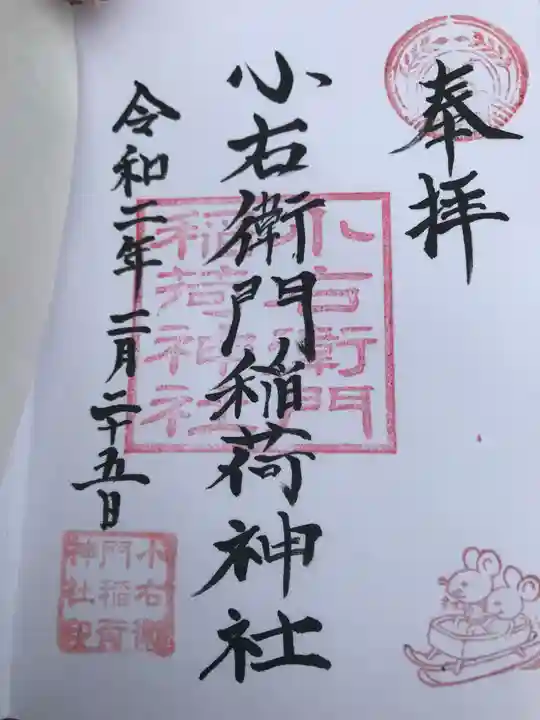 奉拝
小右衛門稲荷神社
令和二年二月二十五日
小右衛門
稲荷神社
小右衛
門稲荷
神社